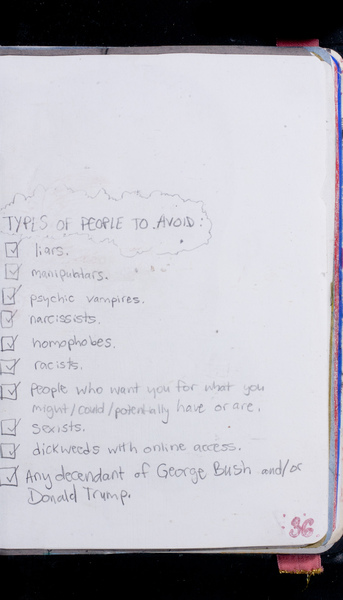 TYPES OF PEOPLE TO AVOID:
liars.
manipulators.
psychic vampires.
narcissists.
homophobes.
racists.
People who want you for what you
might/could/potentially have or are.
sexists.
dickweeds with online access.
Any decendant of George Bush and/or
Donald Trump.
36